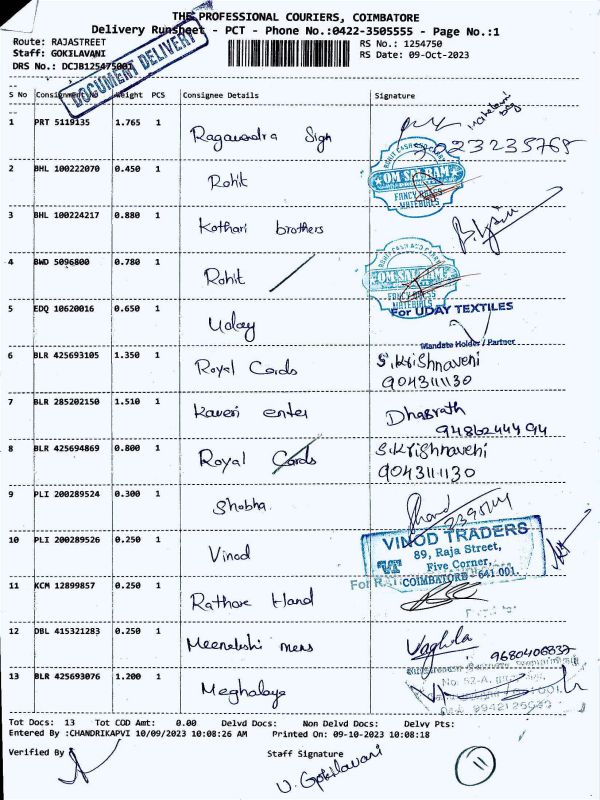 THE PROFESSIONAL COURIERS, COIMBATORE
Delivery Runsheet - PCT - Phone No.:0422-3505555 - Page No.:1
Route: RAJASTREET
RS No.: 1254750
Staff: GOKILAVANI
RS Date: 09-Oct-2023
DRS No.: DCJB125475001
DOCUMENT DELIVERY
S No Consignment No Weight PCS Consignee Details Signature
1 PRT 5119135 1.765 1 Ragavendra Sign
2 BHL 100222070 0.450 1 Rohit
OM SAI RAM
FANCY DRESS
MATERIALS
3 BHL 100224217 0.880 1 Kothari brothers
4 BWD 5096800 0.780 1 Rohit
OM SAI RAM
FANCY DRESS
MATERIALS
For UDAY TEXTILES
5 EDQ 10620016 0.650 1 Uday
Mandate Holder / Partner
6 BLR 425693105 1.350 1 Royal Cards S.Krishnaveni
9043111130
7 BLR 285202150 1.510 1 Kaveri enter Dhasrath
9486244494
8 BLR 425694869 0.800 1 Royal Cards S.Krishnaveni
9043111130
9 PLI 200289524 0.300 1 Shobha
10 PLI 200289526 0.250 1 Vinod
VINOD TRADERS
89, Raja Street,
Five Corner,
COIMBATORE - 641 001.
11 KCM 12899857 0.250 1 Rathore Hand
12 DBL 415321283 0.250 1 Meenakshi mens Vaghla
9680406837
13 BLR 425693076 1.200 1 Meghalaya
Tot Docs: 13 Tot COD Amt: 0.00 Delvd Docs: Non Delvd Docs: Delvy Pts:
Entered By :CHANDRIKAPVI 10/09/2023 10:08:26 AM Printed On: 09-10-2023 10:08:18
Verified By
Staff Signature
V. Gokilavani
11